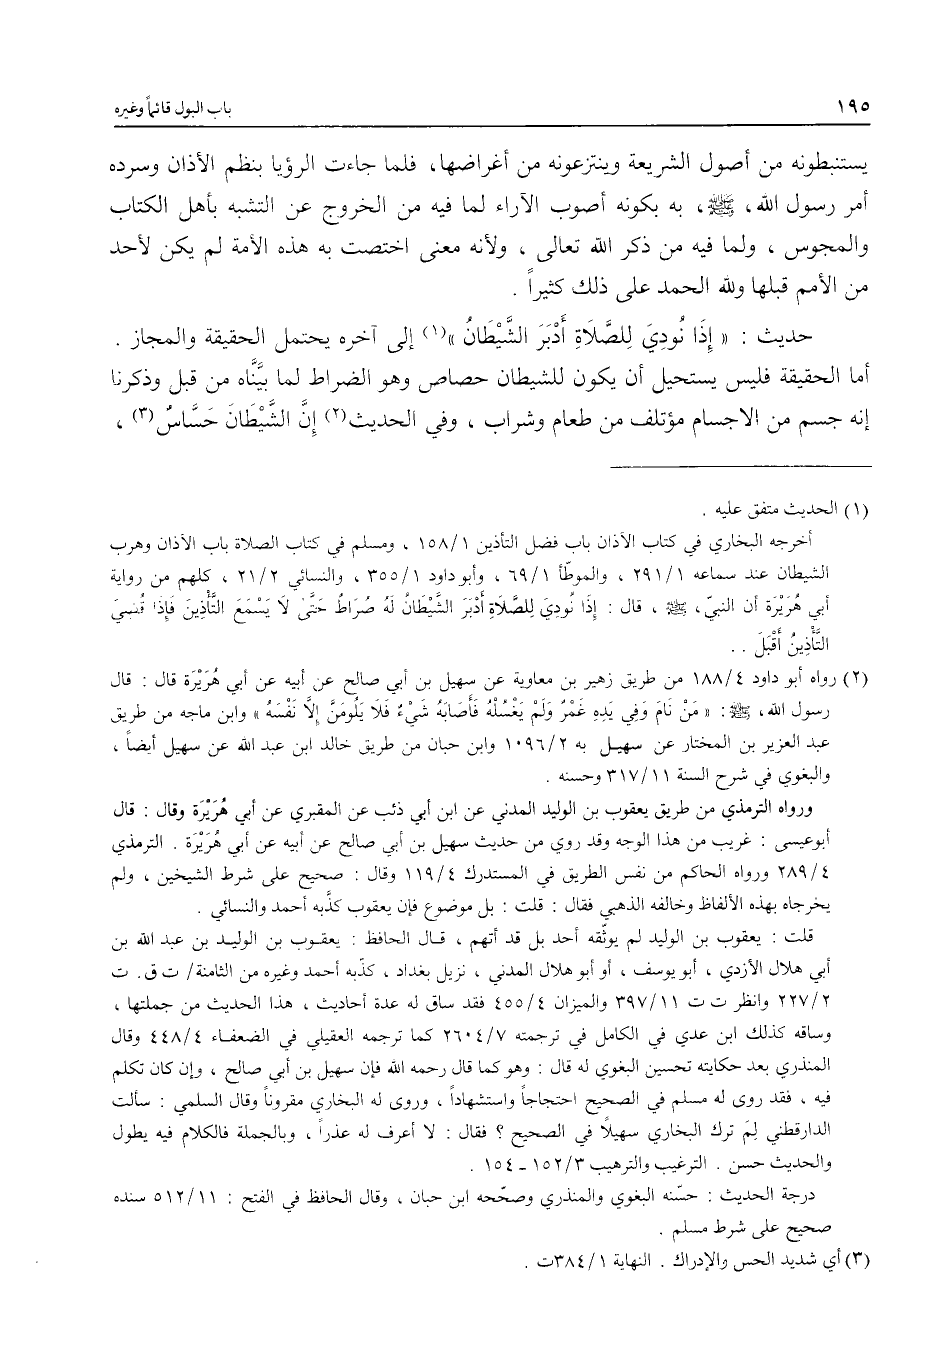 ١٩٥
باب البول قائماً وغيره
يستنبطونه من أصول الشريعة وينتزعونه من أغراضها، فلما جاءت الرؤيا بنظم الأذان وسرده
أمر رسول الله، ﷺ، به بكونه أصوب الآراء لما فيه من الخروج عن التشبه بأهل الكتاب
والمجوس ، ولما فيه من ذكر الله تعالى ، ولأنه معنى اختصت به هذه الأمة لم يكن لأحد
من الأمم قبلها ولله الحمد على ذلك كثيراً .
حديث : « إِذَا نُودِيَ لِلصَّلَاةِ أَدْبَرَ الشَّيْطَانُ »(١) إلى آخره يحتمل الحقيقة والمجاز .
أما الحقيقة فليس يستحيل أن يكون للشيطان حصاص وهو الضراط لما بيَّناه من قبل وذكرنا
إنه جسم من الاجسام مؤتلف من طعام وشراب ، وفي الحديث(٢) إِنَّ الشَّيْطَانَ حَسَّاسٌ(٣) ،
(١) الحديث متفق عليه .
أخرجه البخاري في كتاب الأذان باب فضل التأذين ١٥٨/١ ، ومسلم في كتاب الصلاة باب الأذان وهرب
الشيطان عند سماعه ٢٩١/١ ، والموطّأ ٦٩/١ ، وأبو داود ٣٥٥/١ ، والنسائي ٢١/٢ ، كلهم من رواية
أبي هُرَيْرَة أن النبيّ، ﷺ ، قال : إِذَا نُودِيَ لِلصَّلَاةِ أَدْبَرَ الشَّيْطَانُ لَهُ ضُرَاطٌ حَتَّى لَا يَسْمَعَ التَّأْذِينَ فَإِذَا قُضِيَ
التَّأْذِينُ أَقْبَلَ . .
(٢) رواه أبو داود ١٨٨/٤ من طريق زهير بن معاوية عن سهيل بن أبي صالح عن أبيه عن أبي هُرَيْرَة قال : قال
رسول الله، ﷺ: « مَنْ نَامَ وَفِي يَدِهِ غَمْرٌ وَلَمْ يَغْسِلْهُ فَأَصَابَهُ شَيْءٌ فَلَا يَلُومَنَّ إِلَّا نَفْسَهُ » وابن ماجه من طريق
عبد العزيز بن المختار عن سهيل به ١٠٩٦/٢ وابن حبان من طريق خالد ابن عبد الله عن سهيل أيضاً ،
والبغوي في شرح السنة ٣١٧/١١ وحسنه .
ورواه الترمذي من طريق يعقوب بن الوليد المدني عن ابن أبي ذئب عن المقبري عن أبي هُرَيْرَة وقال : قال
أبوعيسى : غريب من هذا الوجه وقد روي من حديث سهيل بن أبي صالح عن أبيه عن أبي هُرَيْرَة . الترمذي
٢٨٩/٤ ورواه الحاكم من نفس الطريق في المستدرك ١١٩/٤ وقال : صحيح على شرط الشيخين ، ولم
يخرجاه بهذه الألفاظ وخالفه الذهبي فقال : قلت : بل موضوع فإن يعقوب كذَّبه أحمد والنسائي .
قلت : يعقوب بن الوليد لم يوثّقه أحد بل قد أتهم ، قال الحافظ : يعقوب بن الوليد بن عبد الله بن
أبي هلال الأزدي ، أبو يوسف ، أو أبو هلال المدني ، نزيل بغداد ، كذّبه أحمد وغيره من الثامنة/ ت ق. ت
٢٢٧/٢ وانظر ت ت ٣٩٧/١١ والميزان ٤٥٥/٤ فقد ساق له عدة أحاديث ، هذا الحديث من جملتها ،
وساقه كذلك ابن عدي في الكامل في ترجمته ٢٦٠٤/٧ كما ترجمه العقيلي في الضعفاء ٤٤٨/٤ وقال
المنذري بعد حكايته تحسين البغوي له قال : وهو كما قال رحمه الله فإن سهيل بن أبي صالح ، وإن كان تكلم
فيه ، فقد روى له مسلم في الصحيح احتجاجاً واستشهاداً ، وروى له البخاري مقروناً وقال السلمي : سألت
الدارقطني لِمَ ترك البخاري سهيلاً في الصحيح ؟ فقال : لا أعرف له عذراً ، وبالجملة فالكلام فيه يطول
والحديث حسن . الترغيب والترهيب ١٥٢/٣ ـ ١٥٤ .
درجة الحديث : حسّنه البغوي والمنذري وصحّحه ابن حبان ، وقال الحافظ في الفتح : ٥١٢/١١ سنده
صحيح على شرط مسلم .
(٣) أي شديد الحس والإدراك . النهاية ٣٨٤/١ت .